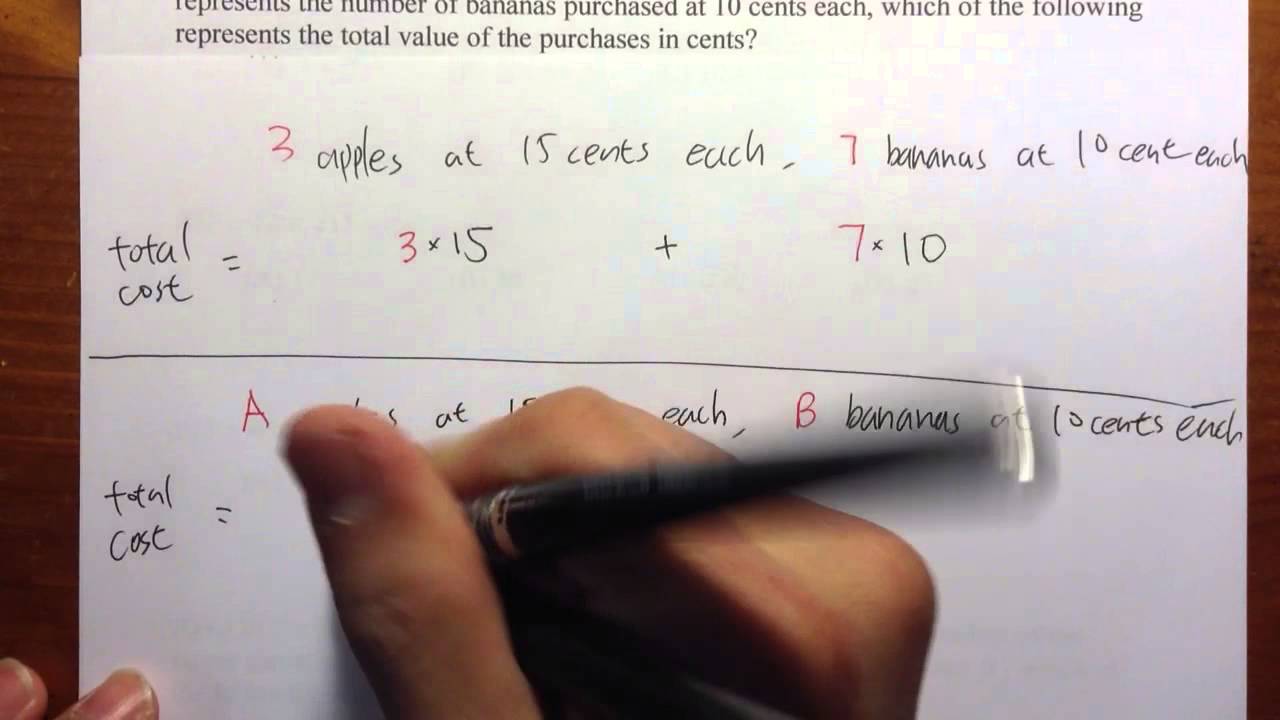 represents the number of bananas purchased at 10 cents each, which of the following
represents the total value of the purchases in cents?
3 apples at 15 cents each, 7 bananas at 10 cent each
total cost = 3 × 15 + 7 × 10
A at each, B bananas at 10 cents each
total cost =